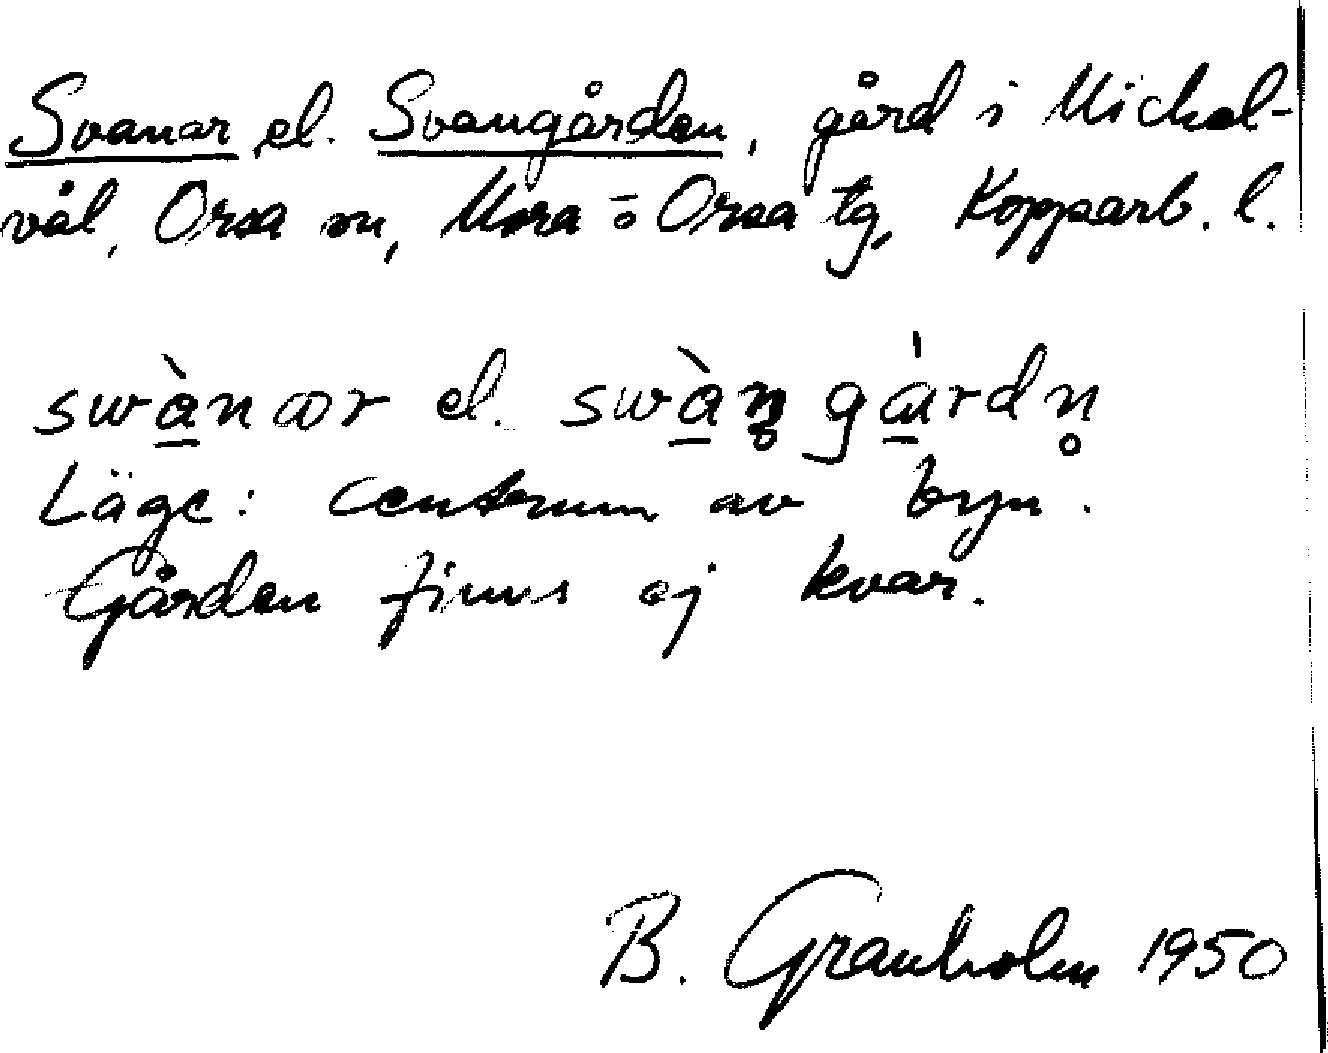 Svanar el. Svangården, gård i Mickel-
vål, Orsa sn, Mora o Orsa tg, Kopparb. l.
swà̱nær el. swà̱n̥ga̱̍rdn̥
Läge: Centrum av byn.
Gården finns ej kvar.
B. Granholm 1950